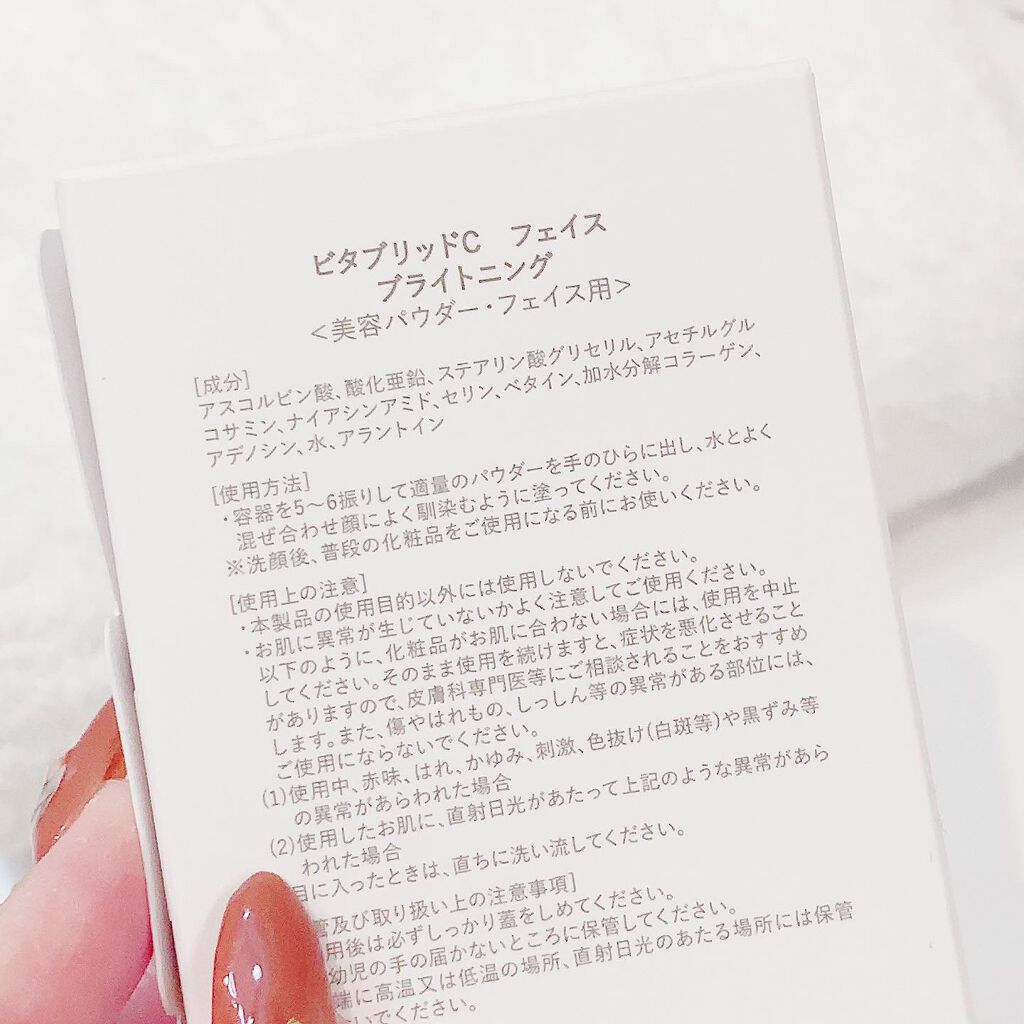 ビタブリッドC　フェイス
ブライトニング
<美容パウダー・フェイス用>
[成分]
アスコルビン酸、酸化亜鉛、ステアリン酸グリセリル、アセチルグル
コサミン、ナイアシンアミド、セリン、ベタイン、加水分解コラーゲン、
アデノシン、水、アラントイン
[使用方法]
・容器を5～6振りして適量のパウダーを手のひらに出し、水とよく
混ぜ合わせ顔によく馴染むように塗ってください。
※洗顔後、普段の化粧品をご使用になる前にお使いください。
[使用上の注意]
・本製品の使用目的以外には使用しないでください。
・お肌に異常が生じていないかよく注意してご使用ください。
以下のように、化粧品がお肌に合わない場合には、使用を中止
してください。そのまま使用を続けますと、症状を悪化させること
がありますので、皮膚科専門医等にご相談されることをおすすめ
します。また、傷やはれもの、しっしん等の異常がある部位には、
ご使用にならないでください。
(1)使用中、赤味、はれ、かゆみ、刺激、色抜け(白斑等)や黒ずみ等
の異常があらわれた場合
(2)使用したお肌に、直射日光があたって上記のような異常があら
われた場合
目に入ったときは、直ちに洗い流してください。
管及び取り扱い上の注意事項]
用後は必ずしっかり蓋をしめてください。
幼児の手の届かないところに保管してください。
端に高温又は低温の場所、直射日光のあたる場所には保管
いでください。